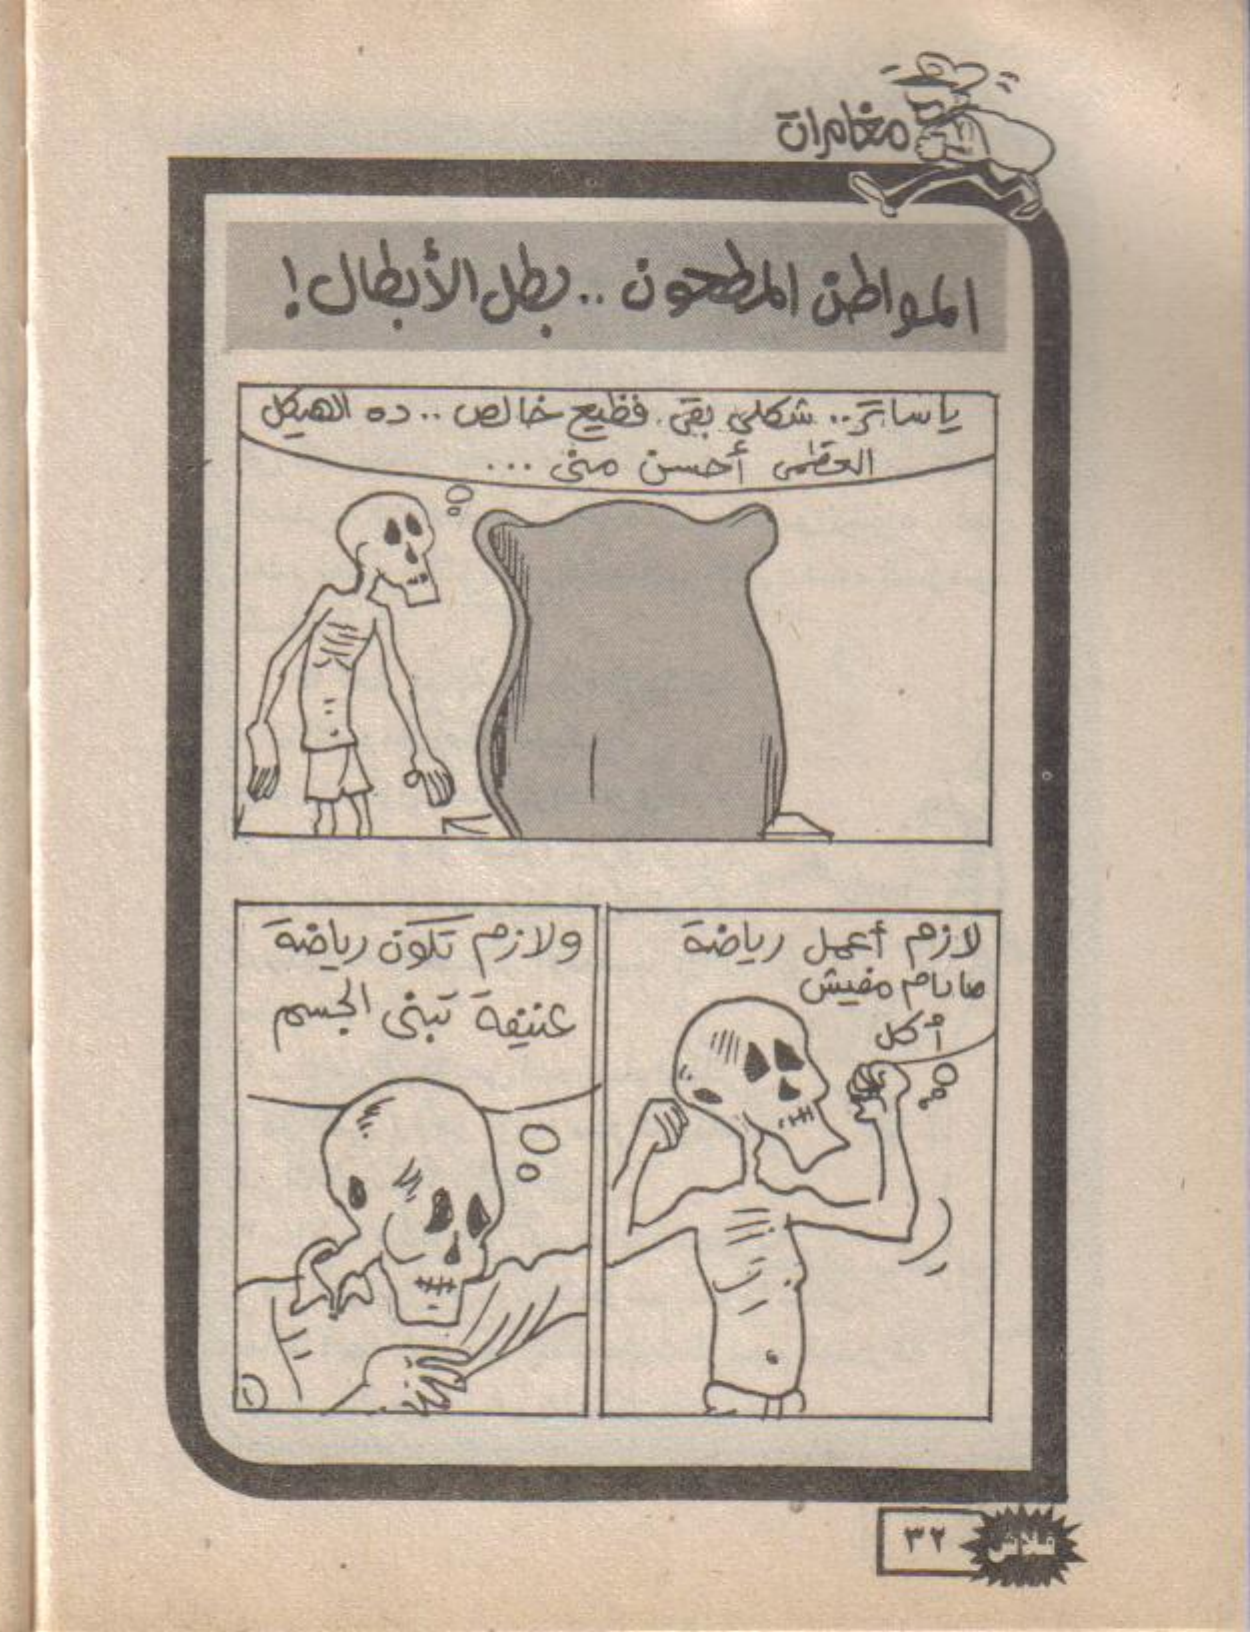 مغامرات
المواطن المطحون .. بطل الأبطال !
يا ساتر .. شكلى بقى فظيع خالص .. ده الهيكل
العظمى أحسن منى ...
لازم أعمل رياضة
مادام مفيش
أكل
ولازم تكون رياضة
عنيفة تبنى الجسم
فلاش
٣٢